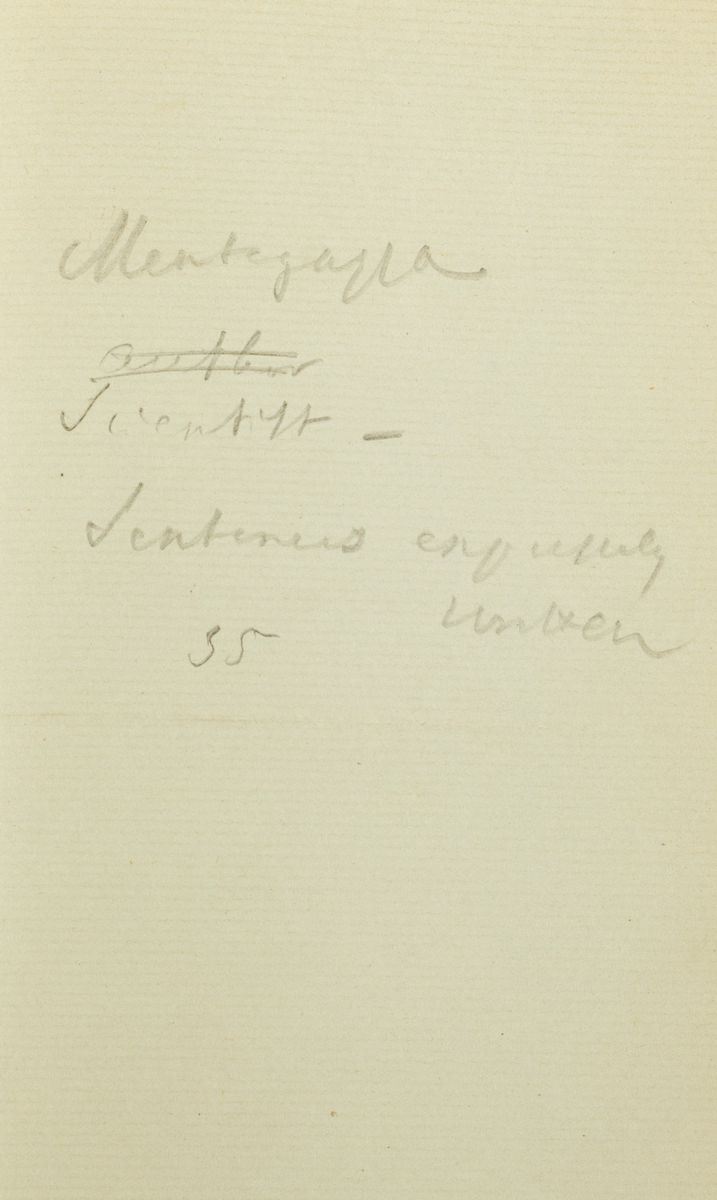 Mentegazza
author
Scientist —
Sentences expressly
written
35